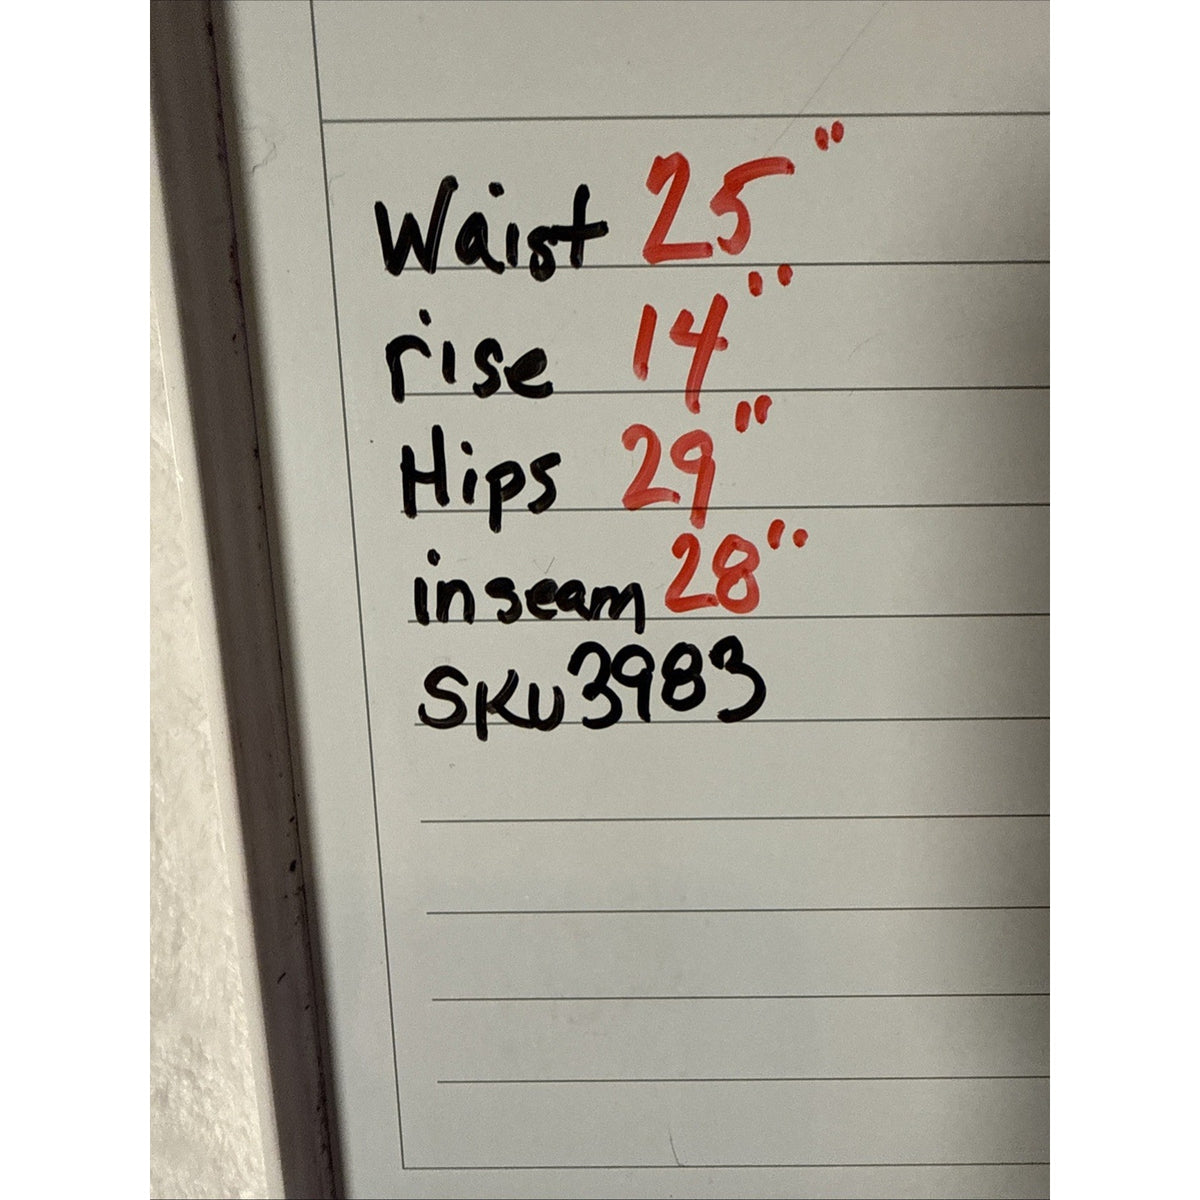 Waist 25"
rise 14"
Hips 29"
inseam 28"
SKU3983